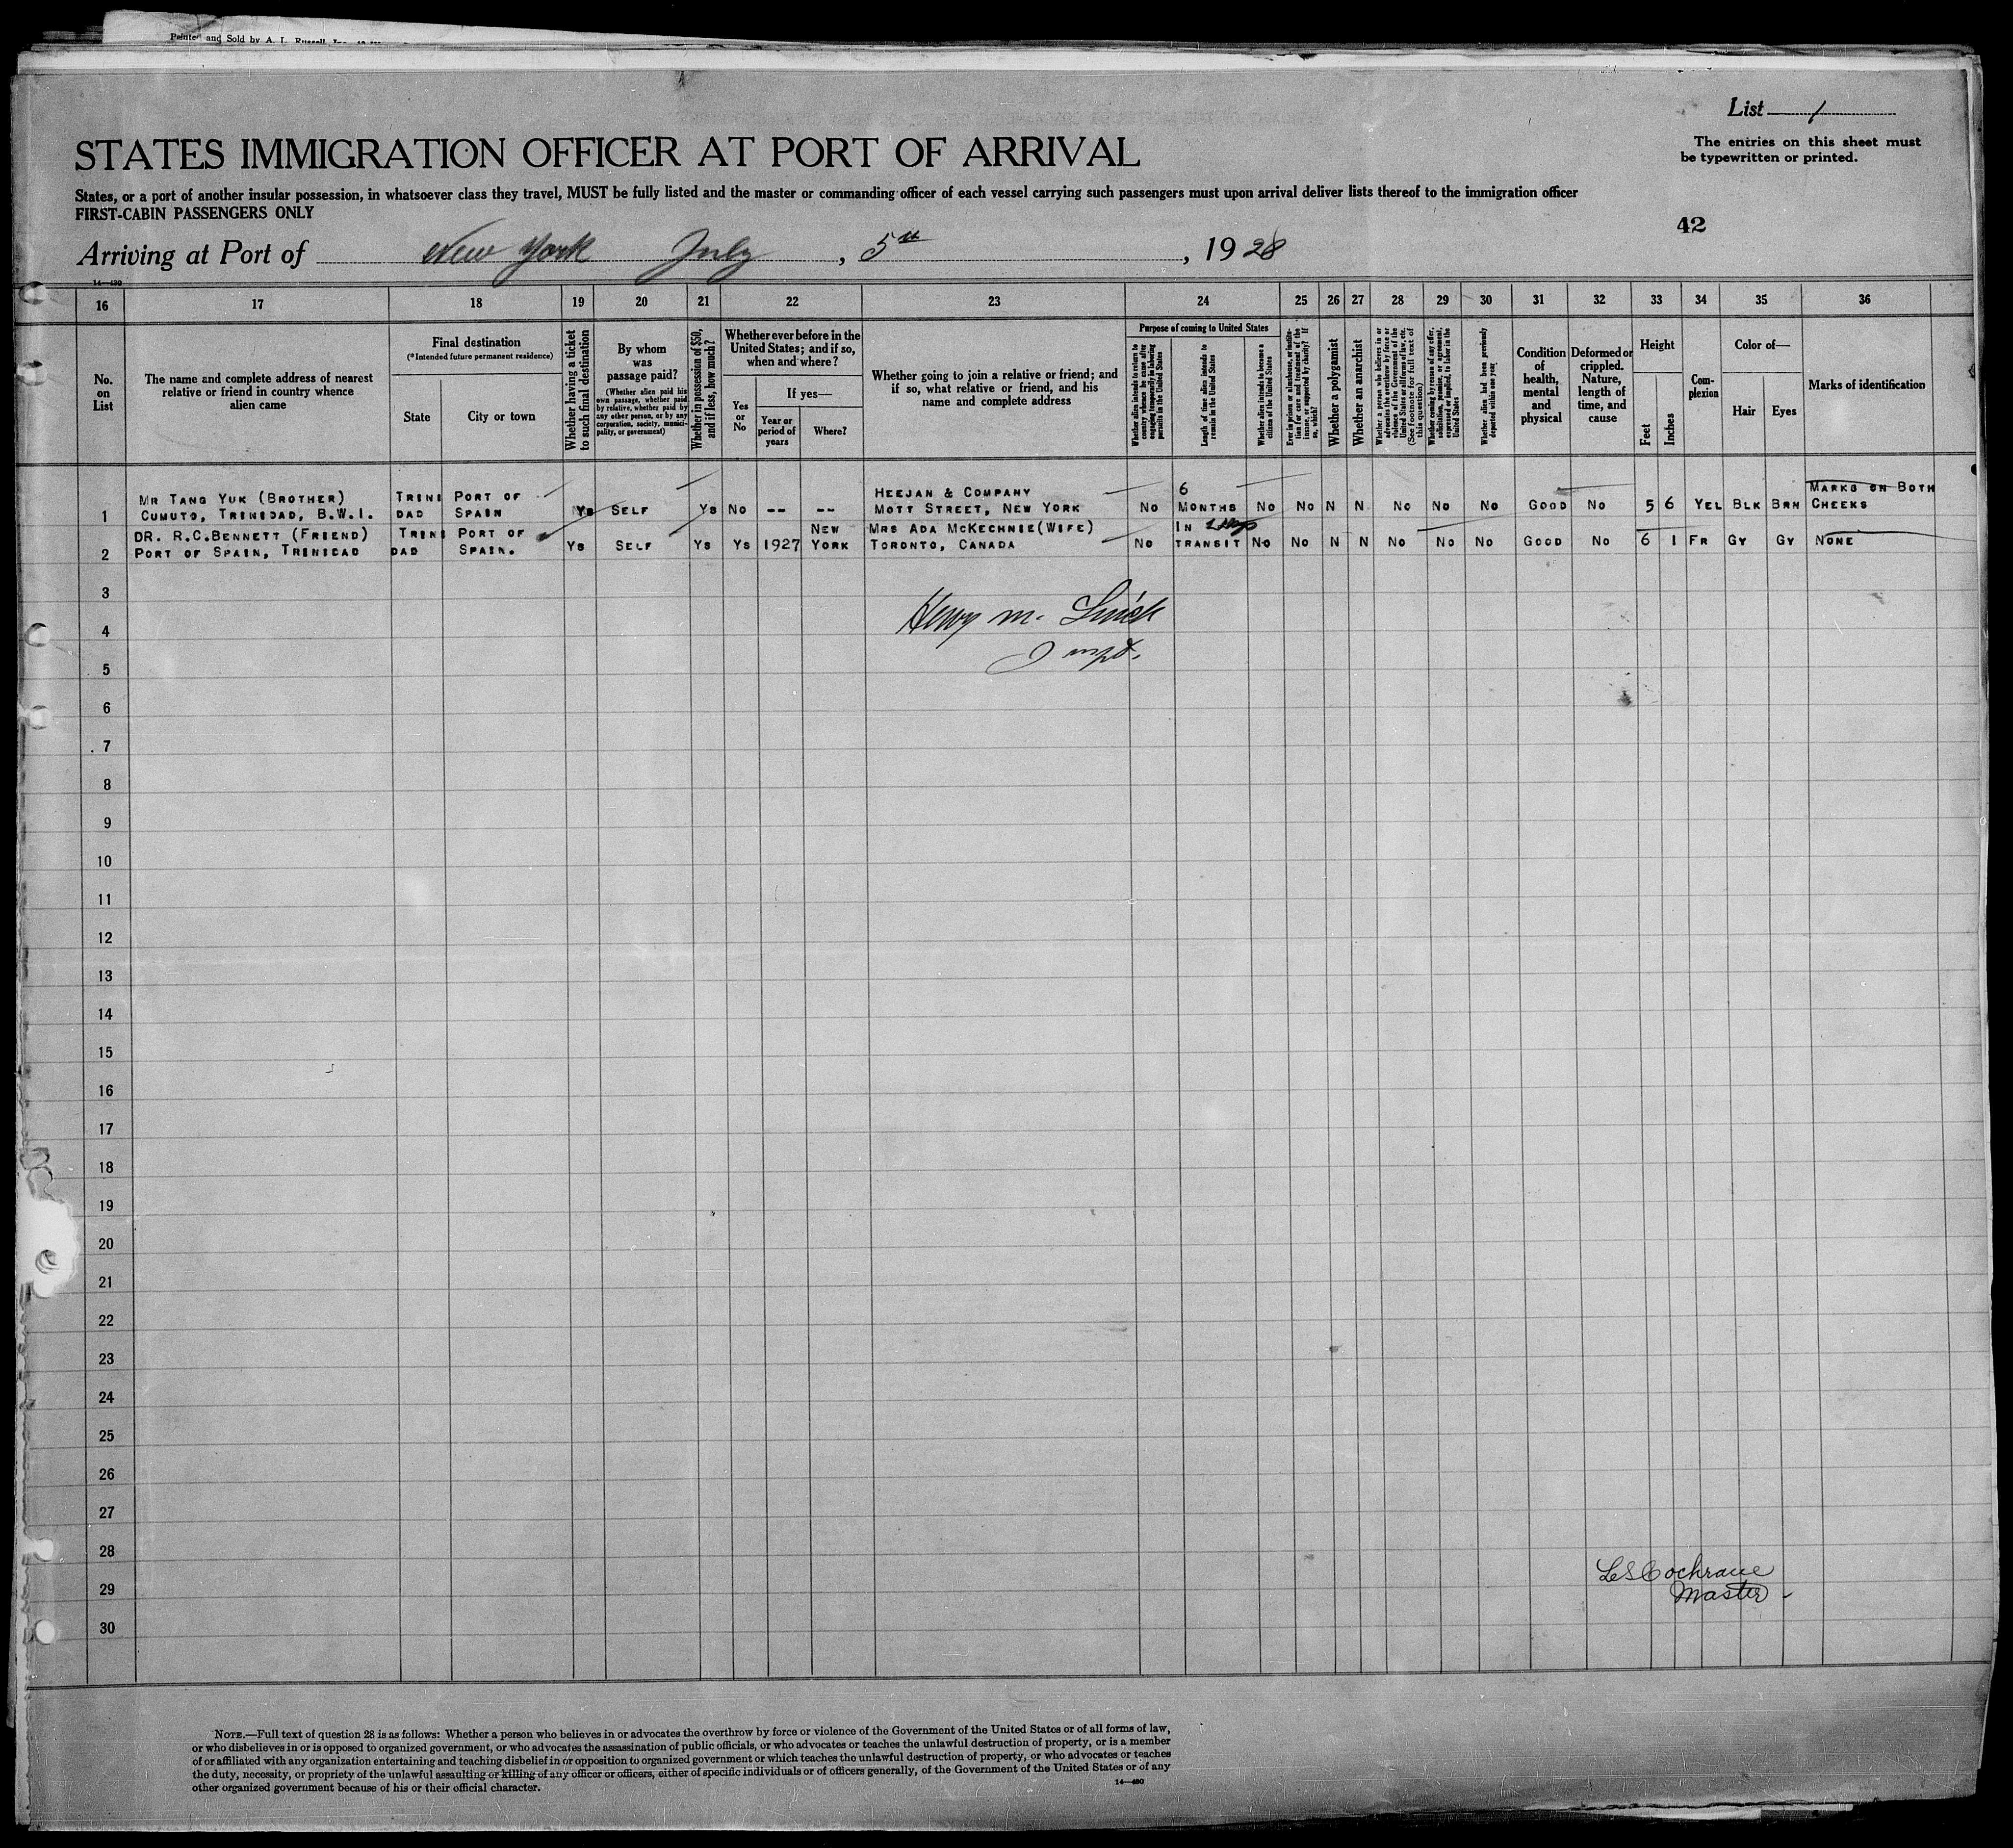 Printed and Sold by A. L. Russell, Inc.
List 1
The entries on this sheet must
be typewritten or printed.
STATES IMMIGRATION OFFICER AT PORT OF ARRIVAL
States, or a port of another insular possession, in whatsoever class they travel, MUST be fully listed and the master or commanding officer of each vessel carrying such passengers must upon arrival deliver lists thereof to the immigration officer
FIRST-CABIN PASSENGERS ONLY
42
Arriving at Port of New York July, 5th, 1928
14—430
16 17 18 19 20 21 22 23 24 25 26 27 28 29 30 31 32 33 34 35 36
No.
on
List
The name and complete address of nearest
relative or friend in country whence
alien came
Final destination
(*Intended future permanent residence)
State
City or town
Whether having a ticket
to such final destination
By whom
was
passage paid?
(Whether alien paid his
own passage, whether paid
by relative, whether paid by
any other person, or by any
corporation, society, munici-
pality, or government)
Whether in possession of $50,
and if less, how much?
Whether ever before in the
United States; and if so,
when and where?
Yes
or
No
If yes—
Year or
period of
years
Where?
Whether going to join a relative or friend; and
if so, what relative or friend, and his
name and complete address
Purpose of coming to United States
Whether alien intends to return to
country whence he came after
engaging temporarily in laboring
pursuits in the United States
Length of time alien intends to
remain in the United States
Whether alien intends to become a
citizen of the United States
Ever in prison or almshouse, or institu-
tion for care and treatment of the
insane, or supported by charity? If
so, which?
Whether a polygamist
Whether an anarchist
Whether a person who believes in or
advocates the overthrow by force or
violence of the Government of the
United States or all forms of law, etc.
(See footnote for full text of
this question)
Whether coming by reason of any offer,
solicitation, promise, or agreement,
expressed or implied, to labor in the
United States
Whether alien had been previously
deported within one year
Condition
of
health,
mental
and
physical
Deformed or
crippled.
Nature,
length of
time, and
cause
Height
Feet
Inches
Com-
plexion
Color of—
Hair
Eyes
Marks of identification
MR TANG YUK (BROTHER) TRINI PORT OF HEEJAN & COMPANY 6 MARKS ON BOTH
1 CUMUTO, TRINIDAD, B.W.I. DAD SPAIN YS SELF YS NO -- -- MOTT STREET, NEW YORK NO MONTHS NO NO N N NO NO NO GOOD NO 5 6 YEL BLK BRN CHEEKS
DR. R.C.BENNETT (FRIEND) TRINI PORT OF NEW MRS ADA MCKECHNIE(WIFE) IN
2 PORT OF SPAIN, TRINIDAD DAD SPAIN. YS SELF YS YS 1927 YORK TORONTO, CANADA NO TRANSIT NO NO N N NO NO NO GOOD NO 6 1 FR GY GY NONE
3
Henry M.
4
5
6
7
8
9
10
11
12
13
14
15
16
17
18
19
20
21
22
23
24
25
26
27
28
LS Cochrane
29
Master
30
NOTE.—Full text of question 28 is as follows: Whether a person who believes in or advocates the overthrow by force or violence of the Government of the United States or of all forms of law,
or who disbelieves in or is opposed to organized government, or who advocates the assassination of public officials, or who advocates or teaches the unlawful destruction of property, or is a member
of or affiliated with any organization entertaining and teaching disbelief in or opposition to organized government or which teaches the unlawful destruction of property, or who advocates or teaches
the duty, necessity, or propriety of the unlawful assaulting or killing of any officer or officers, either of specific individuals or of officers generally, of the Government of the United States or of any
other organized government because of his or their official character.
14—430